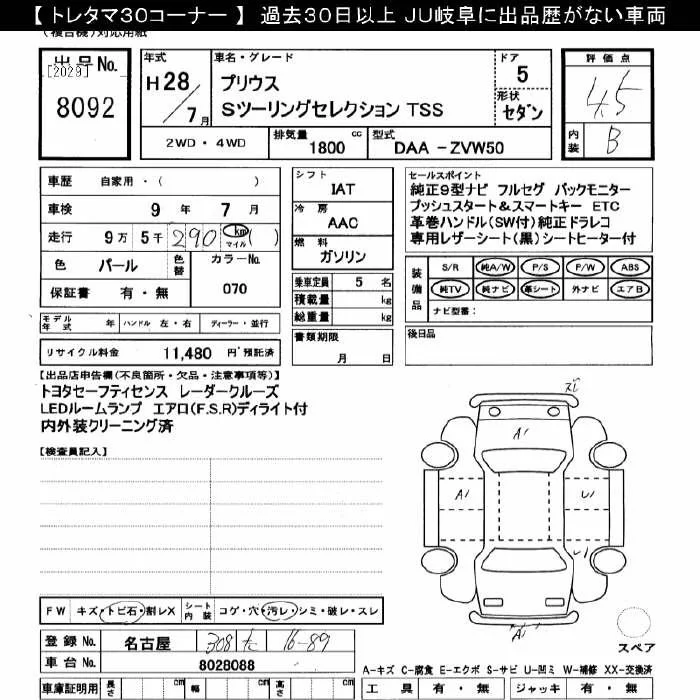 【 トレタマ30コーナー 】 過去30日以上 JU岐阜に出品歴がない車両
(複合機)対応用紙
出品No. [2029] 8092
年式 H28/7月
車名・グレード プリウス Sツーリングセレクション TSS
ドア 5
形状 セダン
評価点 4.5
内装 B
2WD ・ 4WD
排気量 1800 cc
型式 DAA - ZVW50
車歴 自家用・( )
車検 9 年 7 月
走行 9万 5千 290 km マイル ( )
色 パール 色替 カラーNo. 070
保証書 有 ・ 無
モデル年式 年 ハンドル 左・右 ディーラー・並行
リサイクル料金 11,480 円 預託済
シフト IAT
冷房 AAC
燃料 ガソリン
乗車定員 5 名
積載量 kg
総重量 kg
書類期限 月 日
セールスポイント
純正9型ナビ フルセグ バックモニター
プッシュスタート&スマートキー ETC
革巻ハンドル(SW付)純正ドラレコ
専用レザーシート(黒)シートヒーター付
装備品 S/R 純A/W P/S P/W ABS
純TV 純ナビ 革シート 外ナビ エアB
ナビ型番:
後日品
【出品店申告欄(不良箇所・欠品・注意事項等)】
トヨタセーフティセンス レーダークルーズ
LEDルームランプ エアロ(F.S.R)ディライト付
内外装クリーニング済
【検査員記入】
A1
A1
U1
A1
スペア
FW キズ・トビ石・割レX シート内装 コゲ・穴・汚レ・シミ・破レ・スレ
登録No. 名古屋 308 た 16-89
車台No. 8028088
A-キズ C-腐食 E-エクボ S-サビ U-凹ミ W-補修 XX-交換済
車庫証明用 長さ cm 幅 cm 高さ cm
工具 有 ・ 無 ジャッキ 有 ・ 無